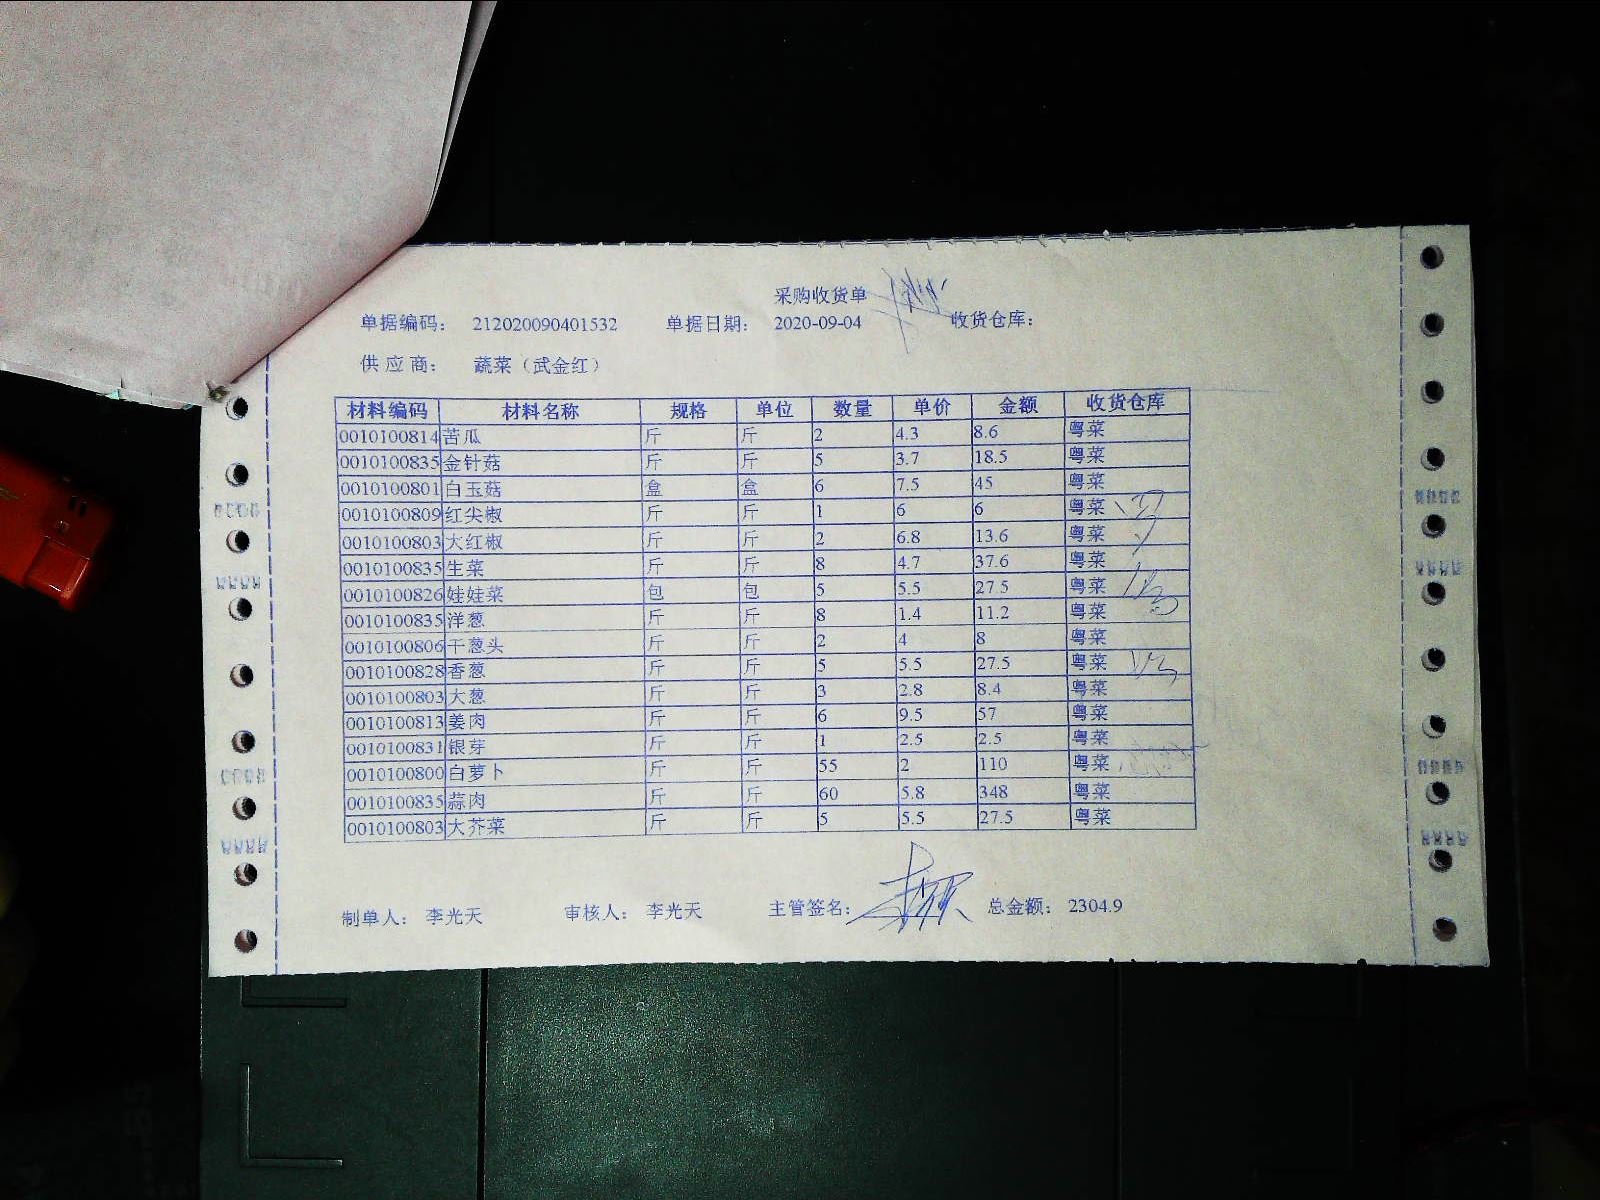 采购收货单
单据编码： 212020090401532 单据日期： 2020-09-04 收货仓库：
供 应 商： 蔬菜（武金红）
材料编码 材料名称 规格 单位 数量 单价 金额 收货仓库
0010100814 苦瓜 斤 斤 2 4.3 8.6 粤菜
0010100835 金针菇 斤 斤 5 3.7 18.5 粤菜
0010100801 白玉菇 盒 盒 6 7.5 45 粤菜
0010100809 红尖椒 斤 斤 1 6 6 粤菜
0010100803 大红椒 斤 斤 2 6.8 13.6 粤菜
0010100835 生菜 斤 斤 8 4.7 37.6 粤菜
0010100826 娃娃菜 包 包 5 5.5 27.5 粤菜
0010100835 洋葱 斤 斤 8 1.4 11.2 粤菜
0010100806 干葱头 斤 斤 2 4 8 粤菜
0010100828 香葱 斤 斤 5 5.5 27.5 粤菜
0010100803 大葱 斤 斤 3 2.8 8.4 粤菜
0010100813 姜肉 斤 斤 6 9.5 57 粤菜
0010100831 银芽 斤 斤 1 2.5 2.5 粤菜
0010100800 白萝卜 斤 斤 55 2 110 粤菜
0010100835 蒜肉 斤 斤 60 5.8 348 粤菜
0010100803 大芥菜 斤 斤 5 5.5 27.5 粤菜
制单人： 李光天 审核人： 李光天 主管签名： 总金额： 2304.9